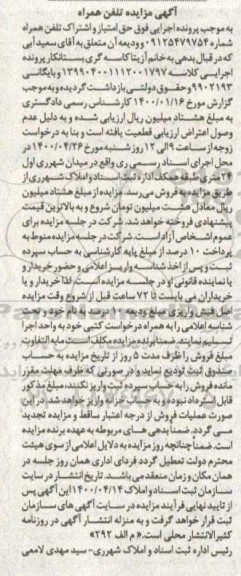 آگهی مزایده تلفن همراه
به موجب پرونده اجرایی فوق حق امتیاز و اشتراک تلفن همراه
شماره ۰۹۱۲۵۴۷۹۷۵۴ و ودیعه آن متعلق به آقای سعید آبی
که در قبال بدهی به خانم آزیتا کاسه گری بستانکار پرونده
اجرایی کلاسه ۱۳۹۹۰۴۰۰۱۱۱۲۰۰۱۷۹۷ و بایگانی
۹۹۰۲۱۹۳ و حقوق دولتی بازداشت گردیده و به موجب
گزارش مورخ ۱۴۰۰/۰۱/۱۶ کارشناس رسمی دادگستری
به مبلغ هشتاد میلیون ریال ارزیابی شده و به دلیل عدم
وصول اعتراض ارزیابی قطعیت یافته است و بنا به درخواست
زوجه از ساعت ۹ الی ۱۲ روز شنبه مورخ ۱۴۰۰/۰۴/۲۶ در
محل اجرای اسناد رسمی ری واقع در میدان شهرری اول
۲۴ متری طبقه همکف اداره ثبت اسناد و املاک شهرری از
طریق مزایده به فروش می رسد. مزایده از مبلغ هشتاد میلیون
ریال معادل هشت میلیون تومان شروع و به بالاترین قیمت
پیشنهادی فروخته خواهد شد. شرکت در جلسه مزایده برای
عموم اشخاص آزاد است. شرکت در جلسه مزایده منوط به
پرداخت ۱۰ درصد از مبلغ پایه کارشناسی به حساب سپرده
ثبت و پس از اخذ شناسه واریز اعلامی و حضور خریدار و
یا نماینده قانونی او در جلسه مزایده است. لذا خریدار و یا
خریداران می بایست تا ۷۲ ساعت قبل از شروع وقت مزایده
فیش واریزی مبلغ ودیعه ۱۰ درصد به نام خود و تحت
شناسه اعلامی را به همراه درخواست کتبی خود به واحد اجرا
تسلیم نمایند. ضمنا برنده مزایده مکلف است مابه التفاوت
مبلغ فروش را ظرف مدت ۵ روز از تاریخ مزایده به حساب
صندوق ثبت تودیع نماید و در صورتی که ظرف مهلت مقرر
مانده فروش را به حساب سپرده ثبت واریز نکنند، مبلغ مذکور
قابل استرداد نبوده و به حساب خزانه واریز خواهد شد. در این
صورت عملیات فروش از درجه اعتبار ساقط و مزایده تجدید
می گردد. ضمنا بدهی های مربوطه به عهده برنده مزایده
است. ضمنا چنانچه روز مزایده به دلایل اعلامی از سوی هیئت
محترم دولت تعطیل گردد فردای اداری همان روز جلسه در
همان مکان و زمان منعقد می باشد. تاریخ انتشار در سایت
سازمان ثبت اسناد و املاک ۱۴۰۰/۰۴/۱۴ این آگهی پس
از تایید نهایی فرآیند مزایده در سایت آگهی های سازمان
ثبت قرار خواهد گرفت و به منزله انتشار آگهی در روزنامه
کثیرالانتشار محلی است.« م الف ۲۹۲»
رئیس اداره ثبت اسناد و املاک شهرری- سید مهدی لامعی